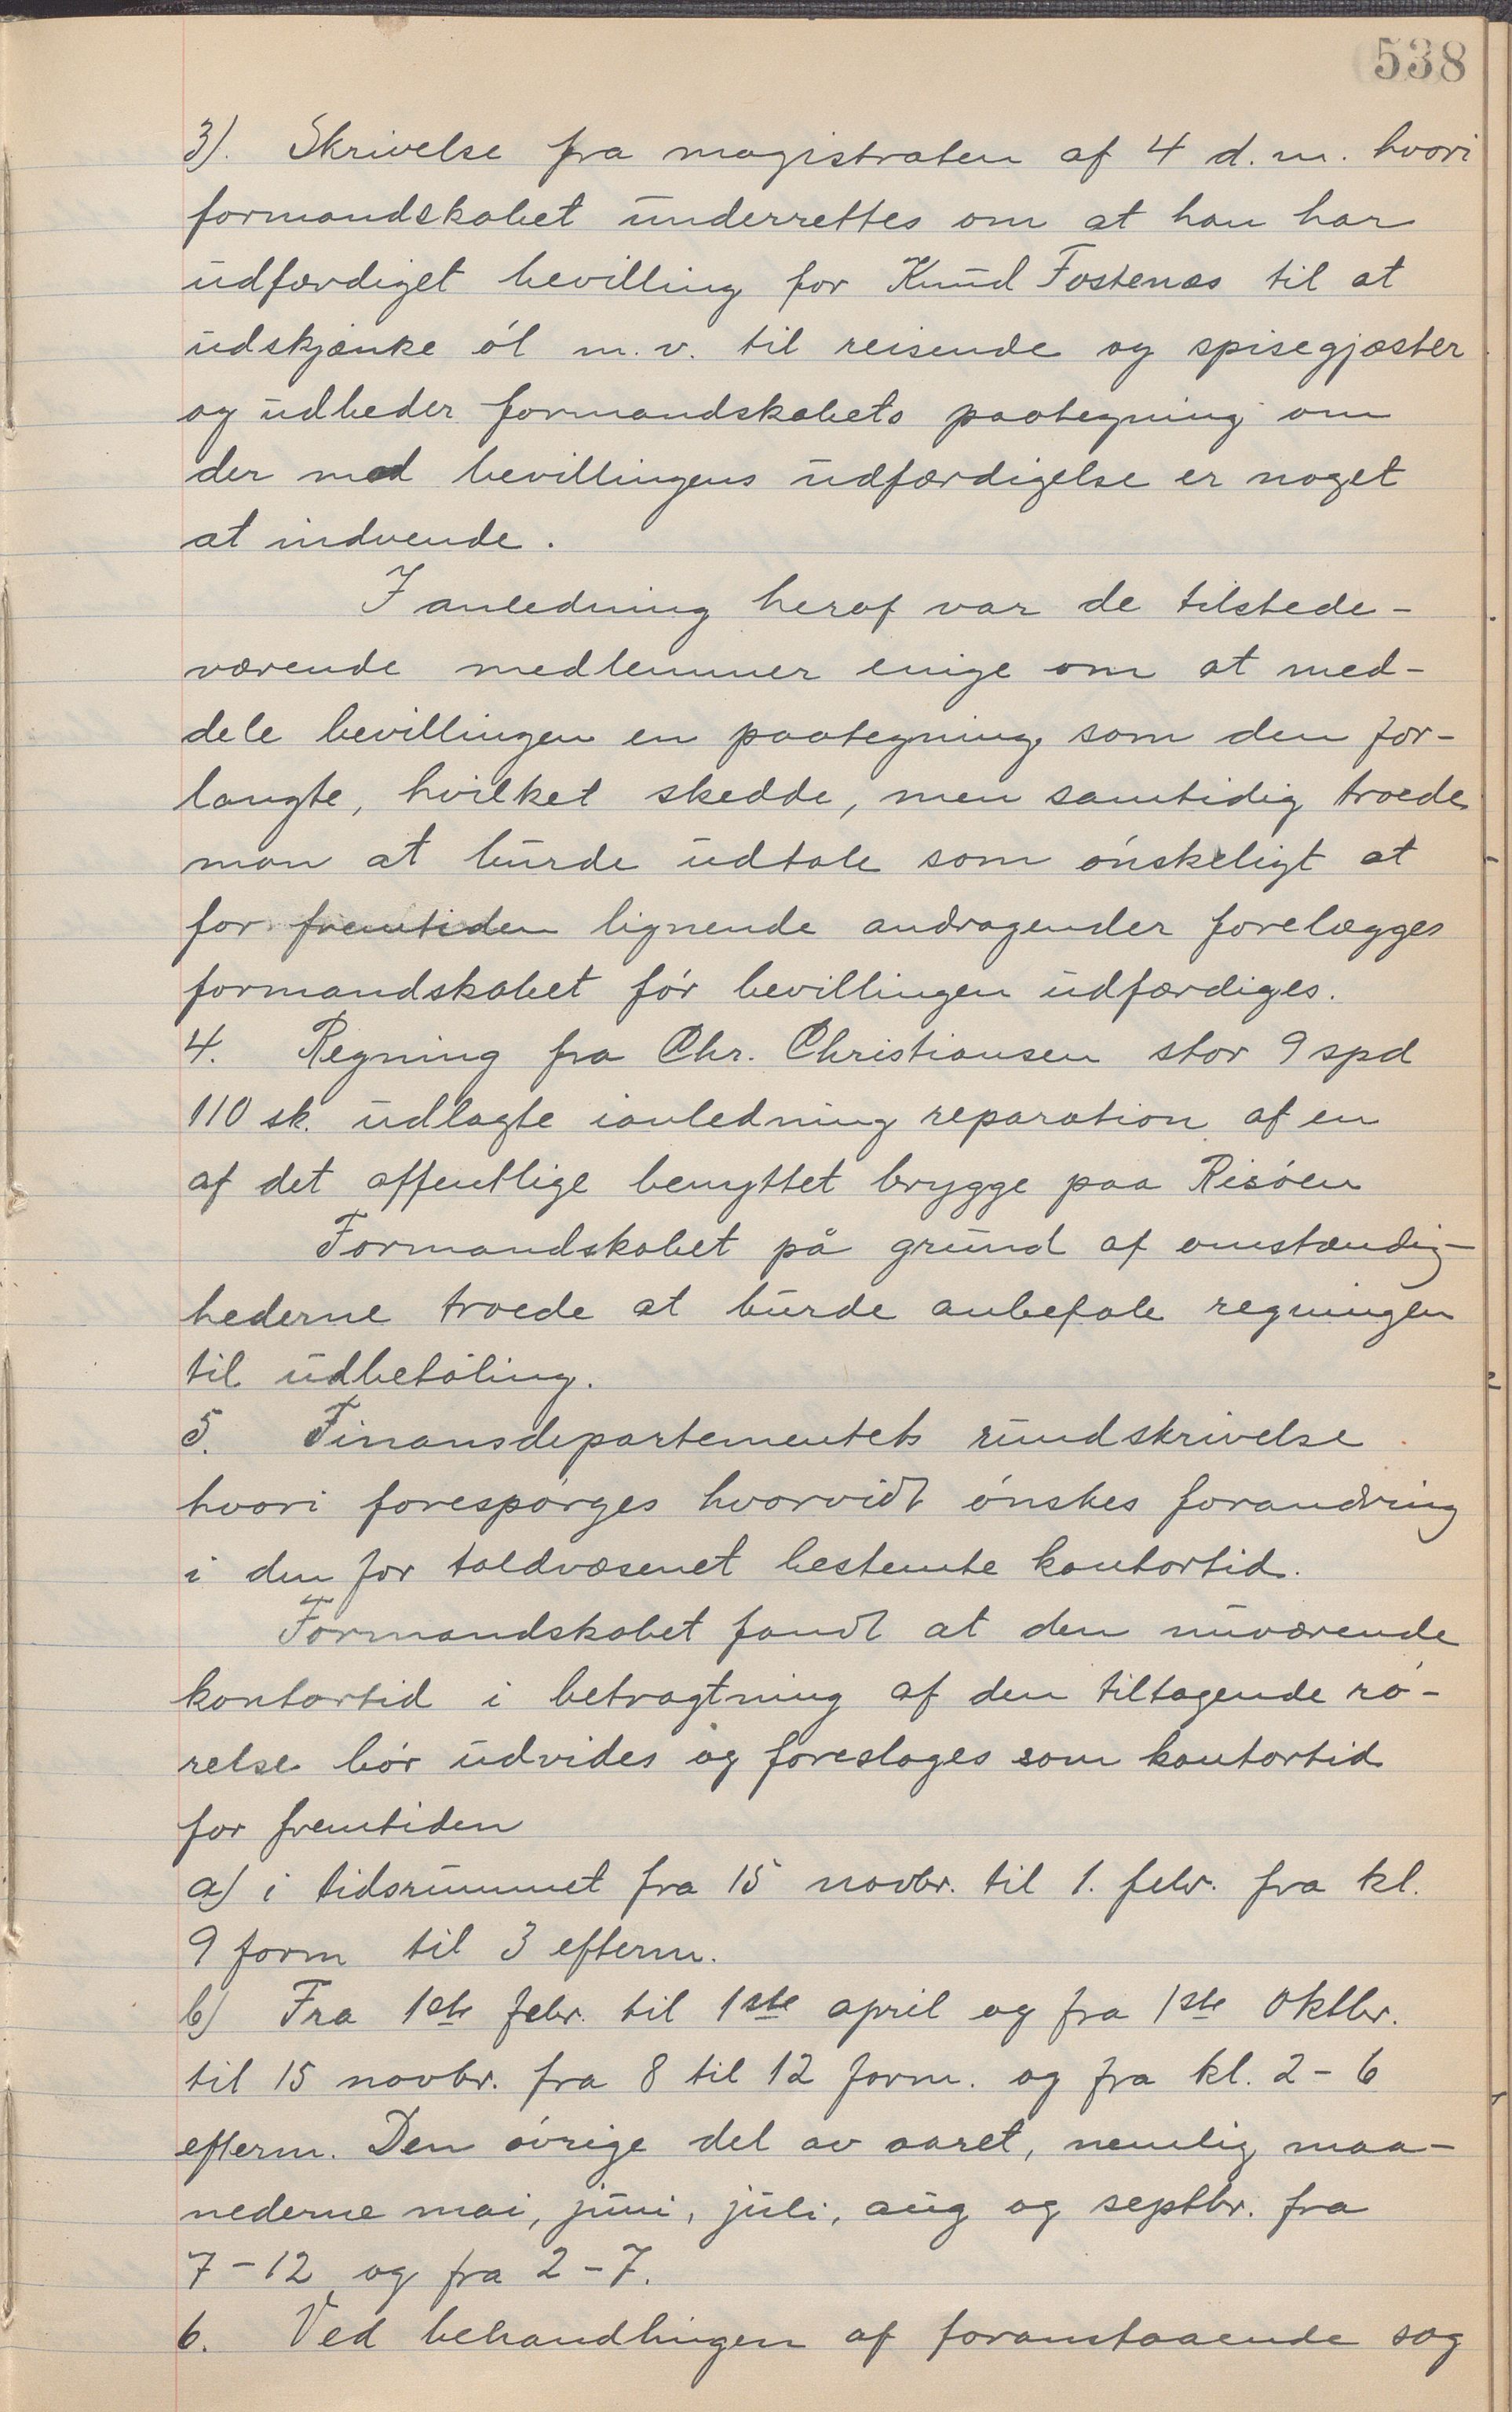 538
3). Skrivelse fra magistraten af 4 d. m. hvori
formandskabet underrettes om at han har
udfærdiget bevilling for Knud Fostenæs til at
udskjænke øl m. v. til reisende og spisegjæster
og udbeder formandskabets paategning om
der med bevillingens udfærdigelse er noget
at indvende.
I anledning heraf var de tilstede-
værende medlemmer enige om at med-
dele bevillingen en paategning som den for-
langte, hvilket skedde, men samtidig troede
man at burde udtale som ønskeligt at
for fremtiden lignende andragender forelægges
formandskabet før bevillingen udfærdiges.
4. Regning fra Chr. Christiansen stor 9 spd
110 sk. udlagte ianledning reparation af en
af det offentlige benyttet brygge paa Risøen
Formandskabet på grund af omstændig-
hederne troede at burde anbefale regningen
til udbetaling.
5. Finansdepartementets rundskrivelse
hvori forespørges hvorvidt ønskes forandring
i den for toldvæsenet bestemte kontortid.
Formandskabet fandt at den nuværende
kontortid i betragtning af den tiltagende rø-
relse bør udvides og foreslages som kontortid
for fremtiden
a) i tidsrummet fra 15 novbr. til 1. febr. fra kl.
9 form til 3 efterm.
b) Fra 1ste febr. til 1ste april og fra 1ste oktbr.
til 15 novbr. fra 8 til 12 form. og fra kl. 2-6
efterm. Den øvrige del av aaret, nemlig maa-
nederne mai, juni, juli, aug og septbr. fra
7-12 og fra 2-7.
6. Ved behandlingen af foranstaaende sag